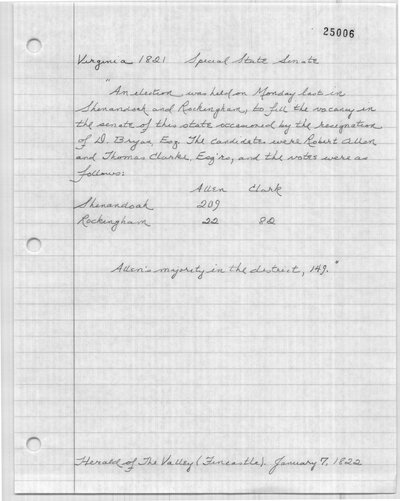 25006
Virginia 1821 Special State Senate
"An election was held on Monday last in
Shenandoah and Rockingham, to fill the vacancy in
the senate of this state occasioned by the resignation
of D. Bryan, Esq. The candidates were Robert Allen
and Thomas Clarke, Esq'rs, and the votes were as
follows:
Allen Clark
Shenandoah 209
Rockingham 22 82
Allen's majority in the district, 149."
Herald of The Valley (Fincastle). January 7, 1822